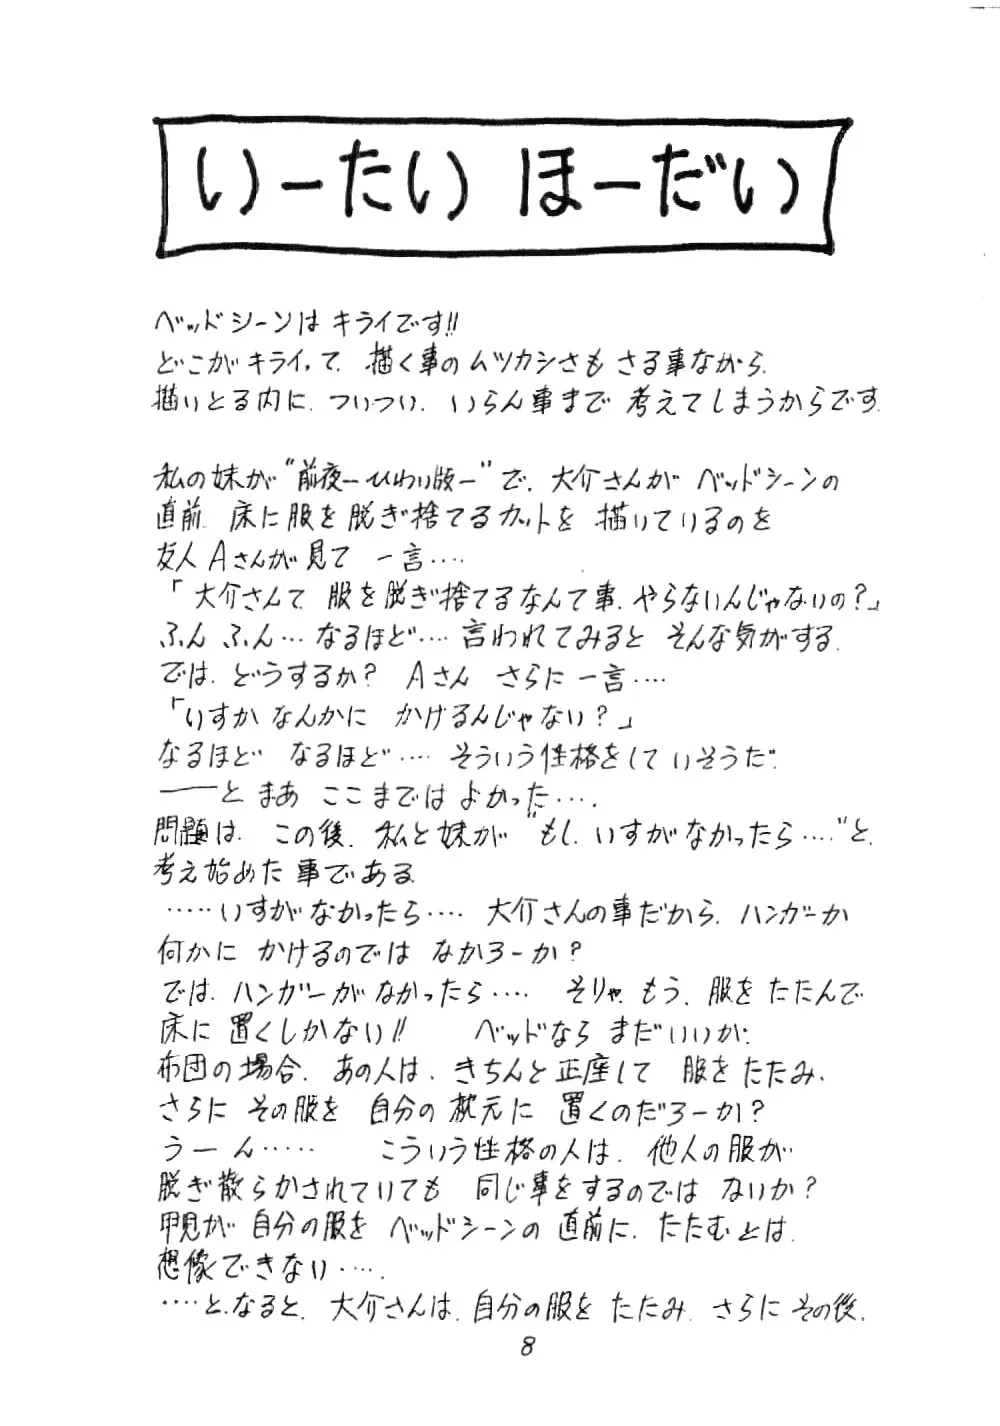 いーたい ほーだい
ベッドシーンは キライです!!
どこがキライって、描く事のムツカシさも さる事ながら、
描いとる内に、ついつい、いらん事まで 考えてしまうからです。
私の妹が“前夜ーひわい版ー”で、大介さんが ベッドシーンの
直前、床に服を脱ぎ捨てるカットを 描いているのを
友人Aさんが見て 一言‥‥
「大介さんて、服を脱ぎ捨てるなんて事、やらないんじゃないの?」
ふん ふん‥‥なるほど‥‥言われてみると そんな気がする。
では、どうするか? Aさん さらに一言‥‥
「いすか なんかに かけるんじゃない?」
なるほど なるほど‥‥ そういう性格をして いそうだ。
――と まあ ここまでは よかった‥‥。
問題は、この後、私と妹が“もし、いすがなかったら‥‥”と、
考え始めた事である。
‥‥‥いすがなかったら‥‥ 大介さんの事だから、ハンガーか
何かに かけるのでは なかろーか?
では、ハンガーがなかったら‥‥ そりゃ、もう、服を たたんで
床に 置くしかない!! ベッドなら まだいいが、
布団の場合、あの人は、きちんと正座して 服をたたみ、
さらに その服を 自分の枕元に 置くのだろーか?
うーん‥‥‥ こういう性格の人は、他人の服が
脱ぎ散らかされていても 同じ事をするのでは ないか?
甲児が 自分の服を ベッドシーンの 直前に、たたむとは
想像できない‥‥。
‥‥と、なると、大介さんは、自分の服を たたみ、さらに その後、
8